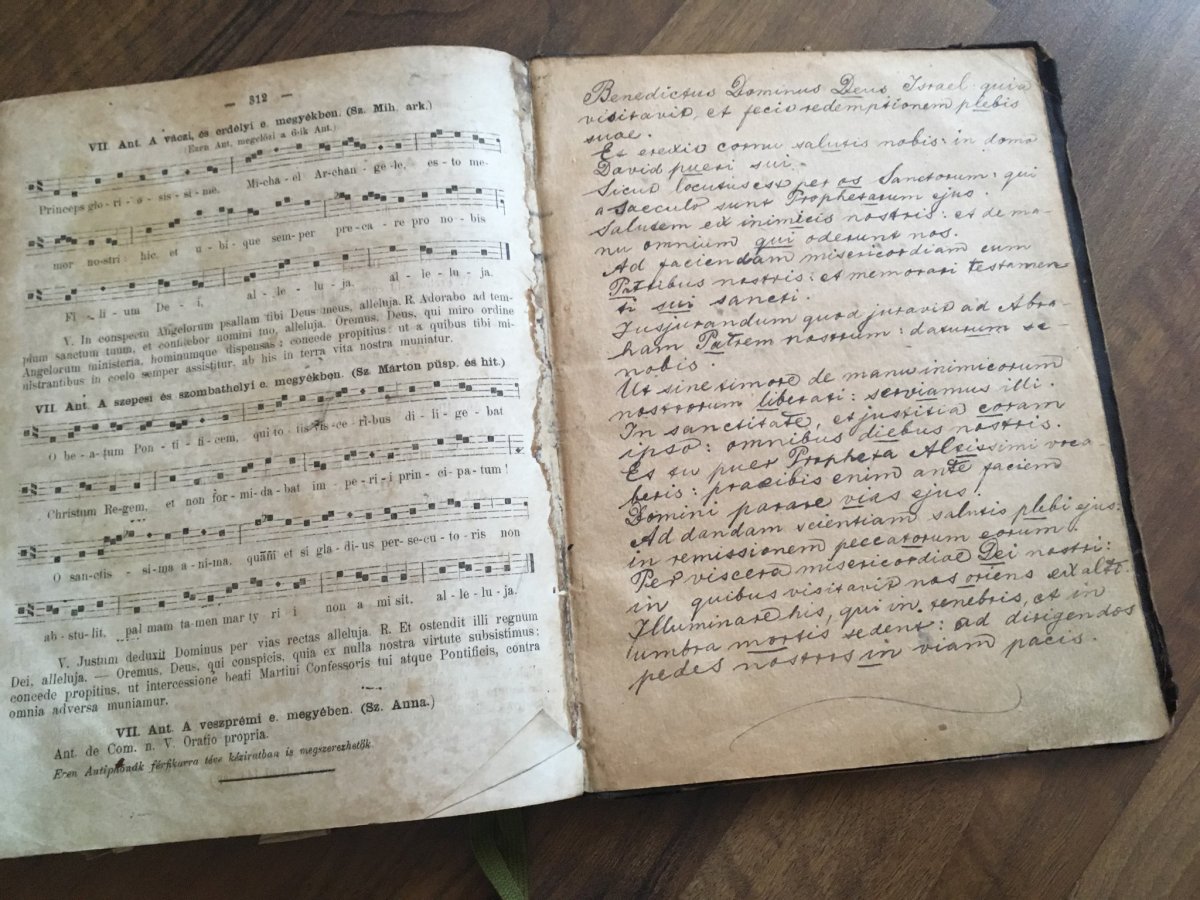 — 312 —
VII. Ant. A váczi, és erdélyi e. megyékben. (Sz. Mih. ark.)
(Ezen Ant. megelőzi a 6-ik Ant.)
Princeps glo - ri - o - sis - si - me, Mi-cha - el Ar-chan - ge - le, es - to me-
mor no-stri: hic, et u - bi - que sem-per pre-ca - re pro no - bis
Fi - li - um De - i, al - le - lu - ja. al - le - lu - ja.
V. In conspectu Angelorum psallam tibi Deus meus, alleluja. R. Adorabo ad tem-
plum sanctum tuum, et confitebor nomini tuo, alleluja. Oremus. Deus, qui miro ordine
Angelorum ministeria, hominumque dispensas; concede propitius: ut a quibus tibi mi-
nistrantibus in coelo semper assistitur, ab his in terra vita nostra muniatur.
VII. Ant. A szepesi és szombathelyi e. megyékben. (Sz. Márton püsp. és hit.)
O be - a - tum Pon - ti - fi - cem, qui to - tis vis - ce - ri-bus di - li - ge - bat
Christum Re-gem, et non for - mi - da - bat im - pe - ri - i prin - ci - pa - tum!
O sanctis - si-ma a - ni-ma, quam et si gla - di - us per - se - cu - to - ris non
ab - stu - lit, pal mam ta - men mar ty ri i non a mi sit. al - le - lu - ja.
V. Justum deduxit Dominus per vias rectas alleluja. R. Et ostendit illi regnum
Dei, alleluja. — Oremus, Deus, qui conspicis, quia ex nulla nostra virtute subsistimus;
concede propitius, ut intercessione beati Martini Confessoris tui atque Pontificis, contra
omnia adversa muniamur.
VII. Ant. A veszprémi e. megyében. (Sz. Anna.)
Ant. de Com. n. V. Oratio propria.
Ezen Antiphonák férfikarra téve kéziratban is megszerezhetők.
Benedictus Dominus Deus Israel: quia
visitavit, et fecit redemptionem plebis
suae.
Et erexit cornu salutis nobis: in domo
David pueri sui.
Sicut locutus est per os Sanctorum: qui
a saeculo sunt Prophetarum ejus.
Salutem ex inimicis nostris: et de ma-
nu omnium qui oderunt nos.
Ad faciendam misericordiam cum
Patribus nostris: et memorari testamen
ti sui sancti.
Jusjurandum quod juravit ad Abra-
ham Patrem nostrum: daturum se
nobis.
Ut sine timore de manu inimicorum
nostrorum liberati: serviamus illi.
In sanctitate, et justitia coram
ipso: omnibus diebus nostris.
Et tu puer Propheta Altissimi voca-
beris: praeibis enim ante faciem
Domini parare vias ejus.
Ad dandam scientiam salutis plebi ejus:
in remissionem peccatorum eorum.
Per viscera misericordiae Dei nostri:
in quibus visitavit nos oriens ex alto.
Illuminare his, qui in tenebris, et in
umbra mortis sedent: ad dirigendos
pedes nostros in viam pacis.